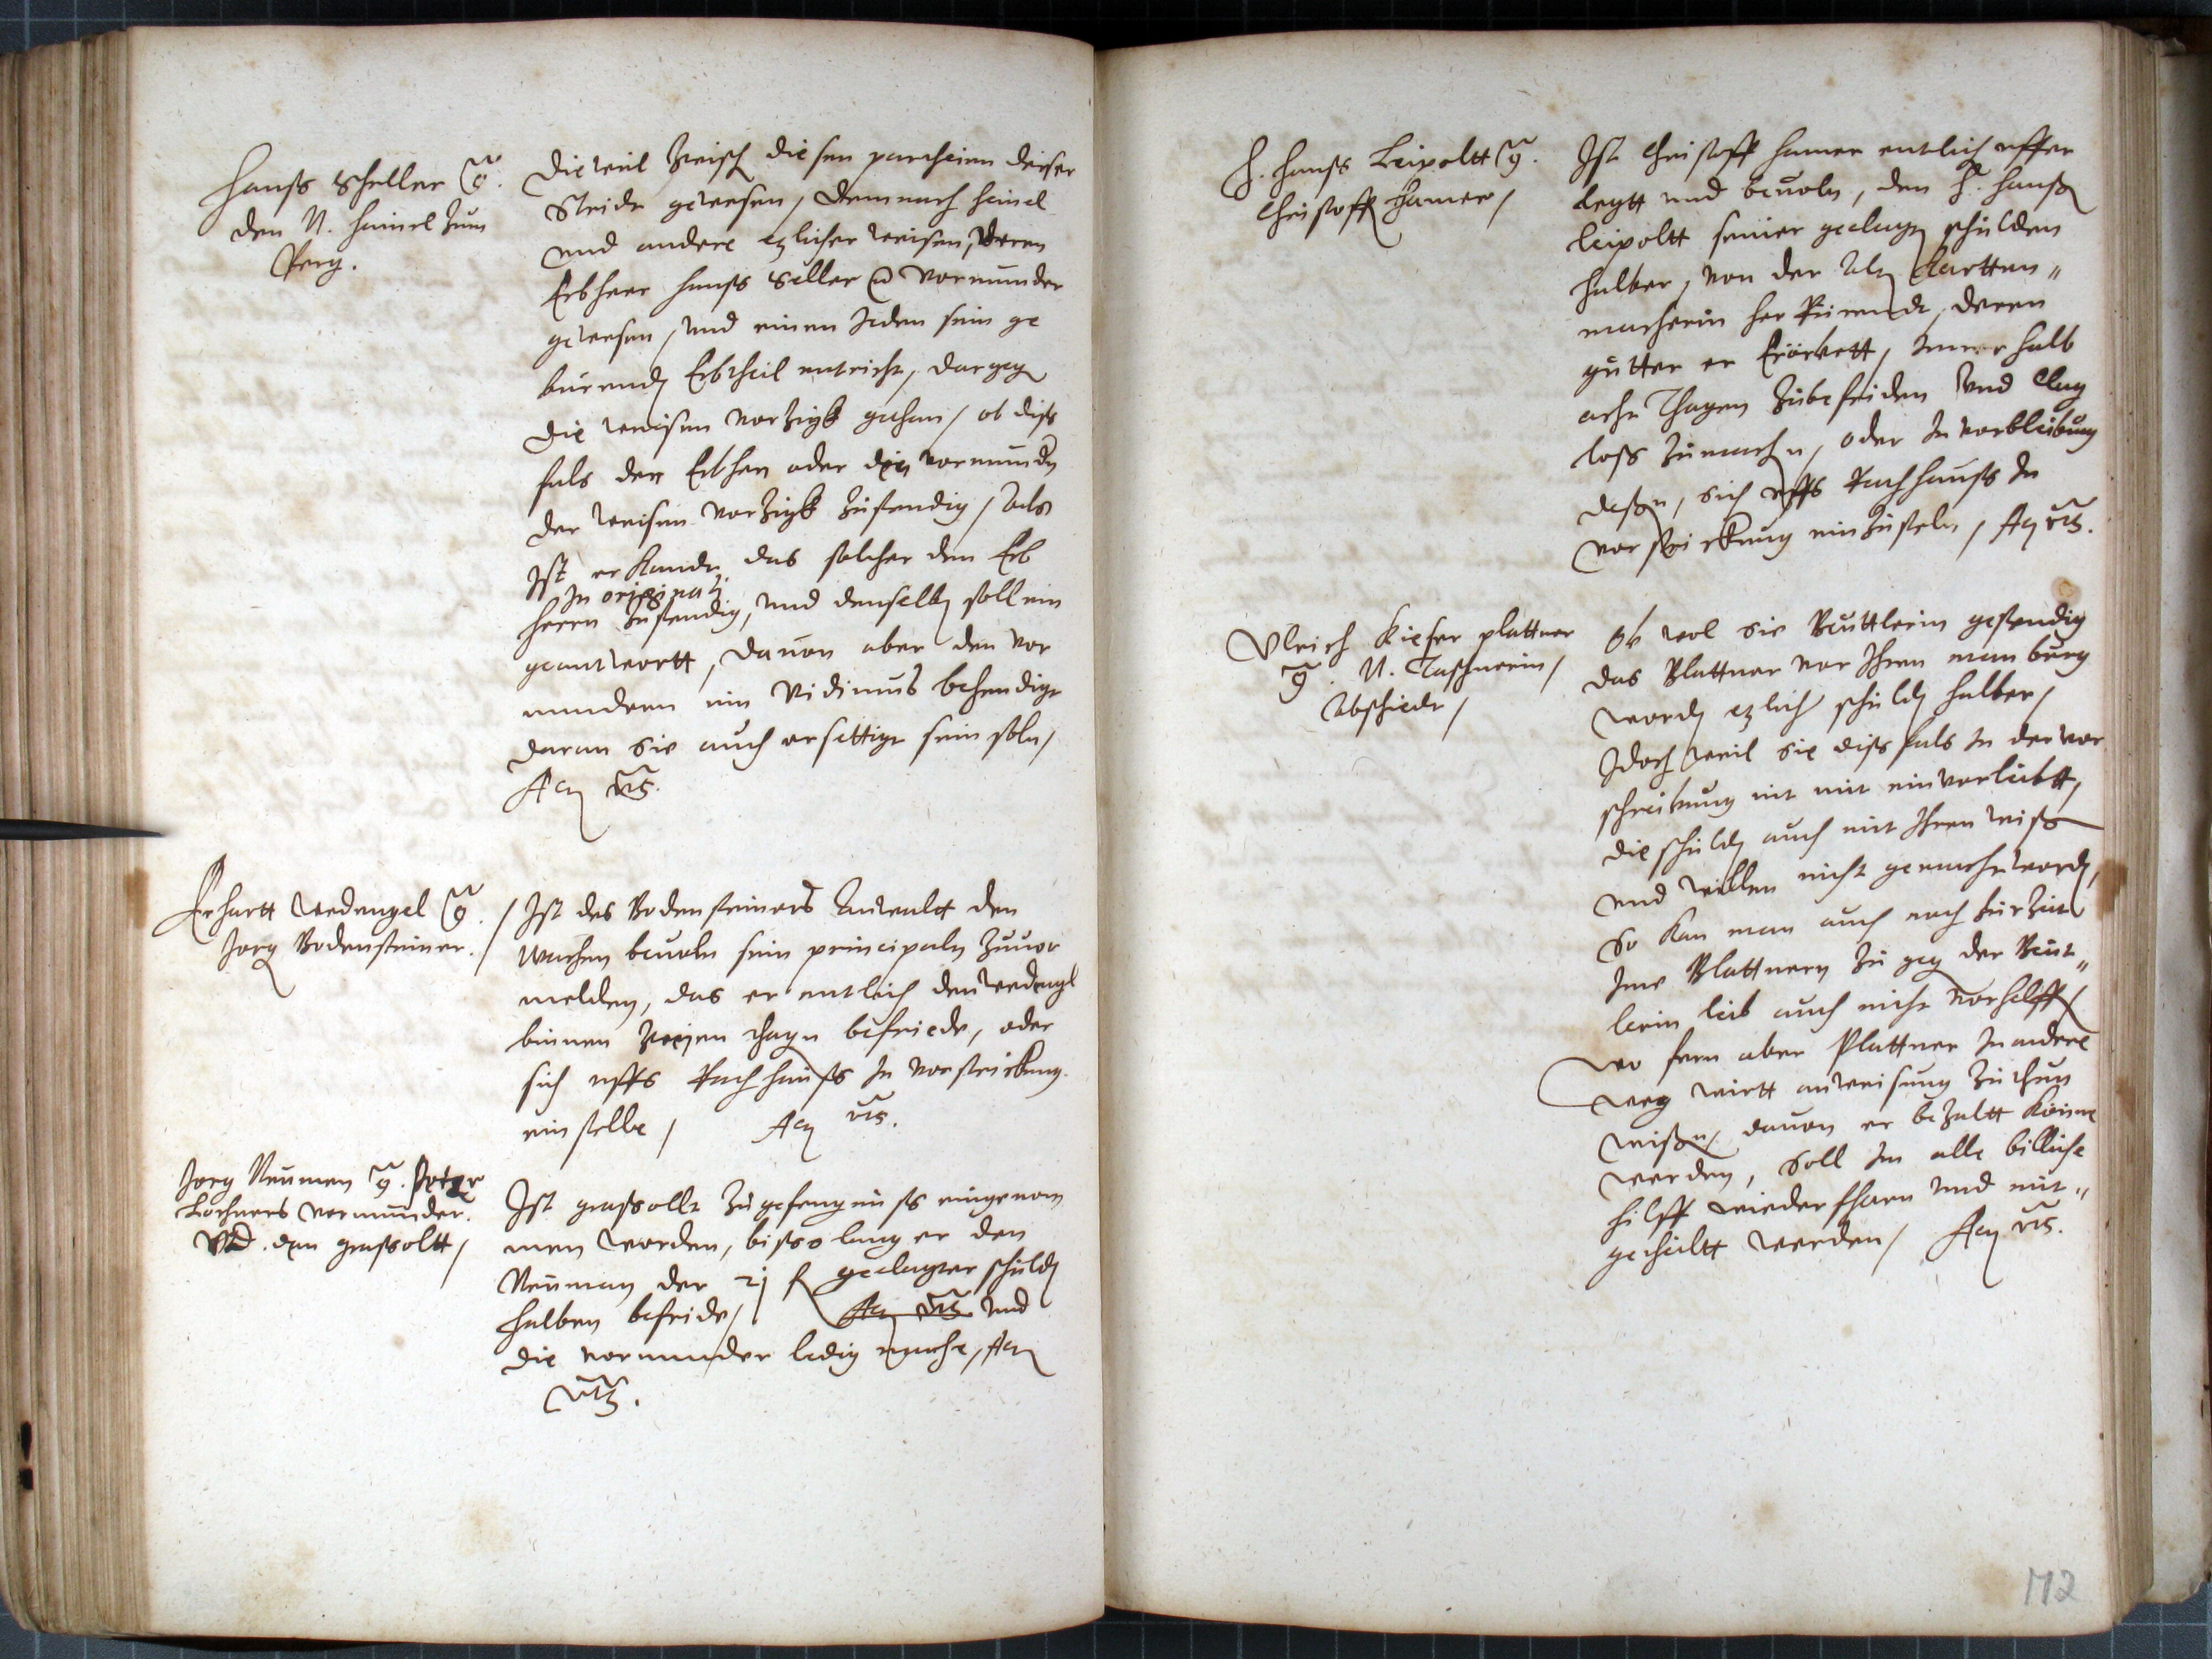 Hanß Scheller C.
den N. Heinel zum
Perg.
Dieweil zwisch diesen partheien dieser
Streidt gewesen, demnach Heinel
und andere etzlicher weisen, deren
Erbherr Hanß Seller Vormunder
gewesen, und einen Jeden sein ge
burendt Erbtheil entricht, dargeg
die weisen vorzigk gethan, ob diß
fals der Erbherr oder den vormundn
der weisen vorzigk zustendig, Als
Ist erkandt, das solcher dem Erb
In originali
herrn zustendig, und denselben soll ein
geantwortt, dauon aber den vor
mundern ein Vidimus behendigt
daran sie auch ersettigt sein soln,
Act uts.
Erhartt Wedengel C.
Jorg Bodensteiner.
Ist des Bodensteiners Anwaldt den
Wachen beuoln sein principaln zuuor
melden, das er entlich den wedengl
binnen zweyen thagn befriede, oder
sich uffs Rathhauß In vorstrickung
einstelle, Act uts.
Jorg Neumen C. Peter
Lochners vormunder.
Vnd den graßoltt,
Ist graßollt zu gefengnuß eingenom
men worden, bißso lang er den
Neuman der 2j f geclagter schuldn
halben befride, Act uts und
die vormunder ledig mache, Act
uts.
H. Hanß Leipoltt C.
Christoff Hamer,
Ist Christoff Hamer entlich uffer
legtt und beuoln, den H. Hanß
Leipoltt seiner geclagtn schulden
halber, von der Altn Kartten„
macherin her Rurendt, deren
gutter er Ererbett, Innerhalb
acht Thagen zubefriden Und Clag
loß zumachn, oder In vorbleibung
deßen, sich uffs Rathhauß In
vorstrickung einzusteln, Act uts.
Vlrich Kieser plattner
C. N. Taschnerin,
Abschiedt,
Ob wol die Beuttlerin gestendig
das Blattner vor Ihren man burg
wordn etzlich schuldn halber,
Idoch weil sie diß fals In der vor
schreibung nit mit einvorleibtt,
die schuldn auch mit Ihren wißn
und willen nicht gemacht wordn,
So kan man auch noch zur zeit
Ime Blattnern zu geg der Beut„
lerin leib auch nicht vorhelffn
wo fern aber Plattner In andere
weg wirtt anweisung zuthun
wißen, dauon er bezaltt könne
werden, Soll Im alle billiche
hilff wiederfharn Und mit„
getheiltt werden, Act uts.
172